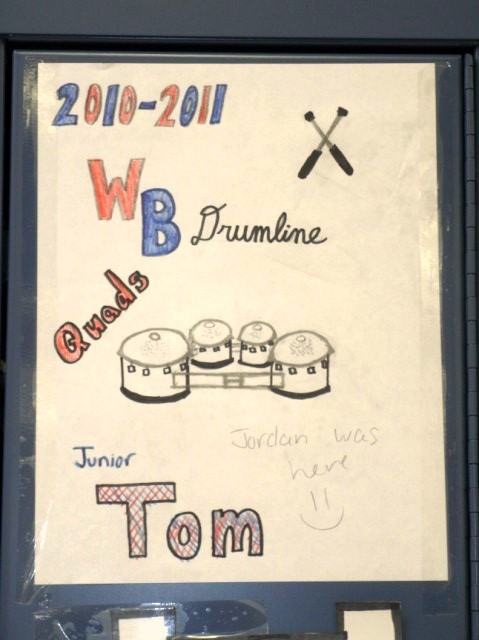 2010-2011
WB Drumline
Quads
Jordan was
here
Junior
Tom